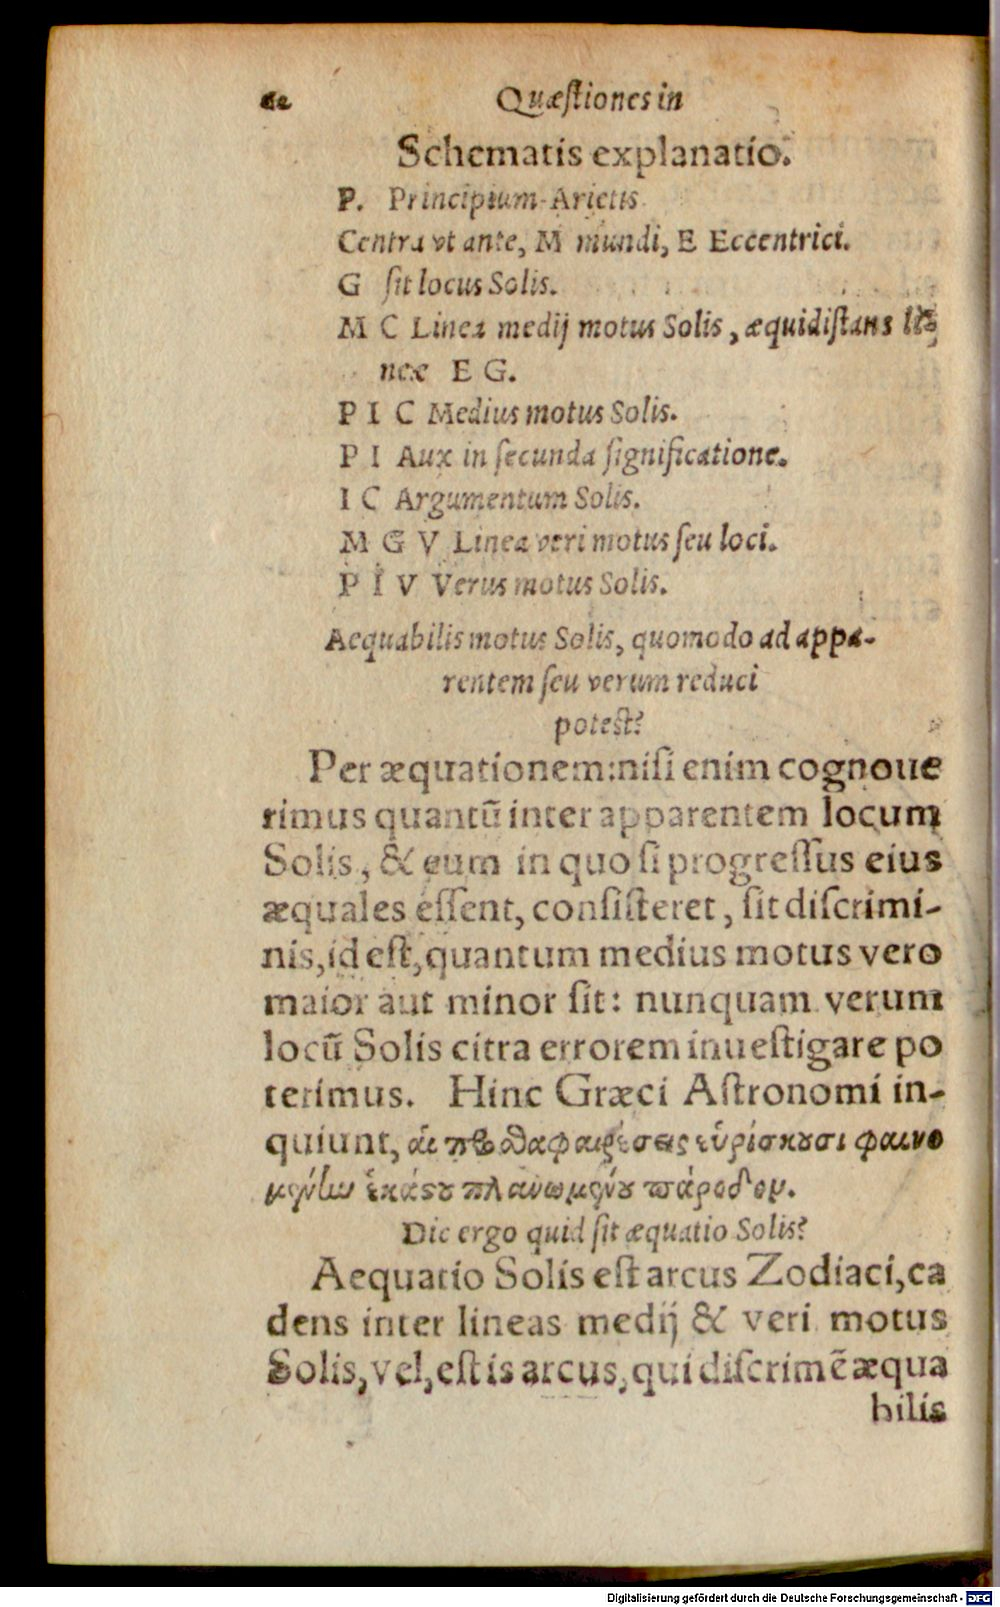 Quæſtiones in
Schematis explanatio.
P. Principium Arietis
Centra vt ante, M mundi, E Eccentrici.
G ſit locus Solis.
M C Linea medij motus Solis, æquidiſtans li-
neæ E G.
P I C Medius motus Solis.
P I Aux in ſecunda ſignificatione.
I C Argumentum Solis.
M G V Linea veri motus ſeu loci.
P I V Verus motus Solis.
Aequabilis motus Solis, quomodo ad appa-
rentem ſeu verum reduci
poteſt?
Per æquationem: niſi enim cognoue
rimus quantū inter apparentem locum
Solis, & eum in quo ſi progreſſus eius
æquales eſſent, conſiſteret, ſit diſcrimi-
nis, id eſt, quantum medius motus vero
maior aut minor ſit: nunquam verum
locū Solis citra errorem inueſtigare po
terimus. Hinc Græci Aſtronomi in-
quiunt, αἱ προσθαφαιρέσεις εὑρίσκουσι φαινο
μένην ἑκάστου πλανωμένου πάροδον.
Dic ergo quid ſit æquatio Solis?
Aequatio Solis eſt arcus Zodiaci, ca
dens inter lineas medij & veri motus
Solis, vel, eſt is arcus, qui diſcrimē æqua
bilis
Digitalisierung gefördert durch die Deutsche Forschungsgemeinschaft - DFG